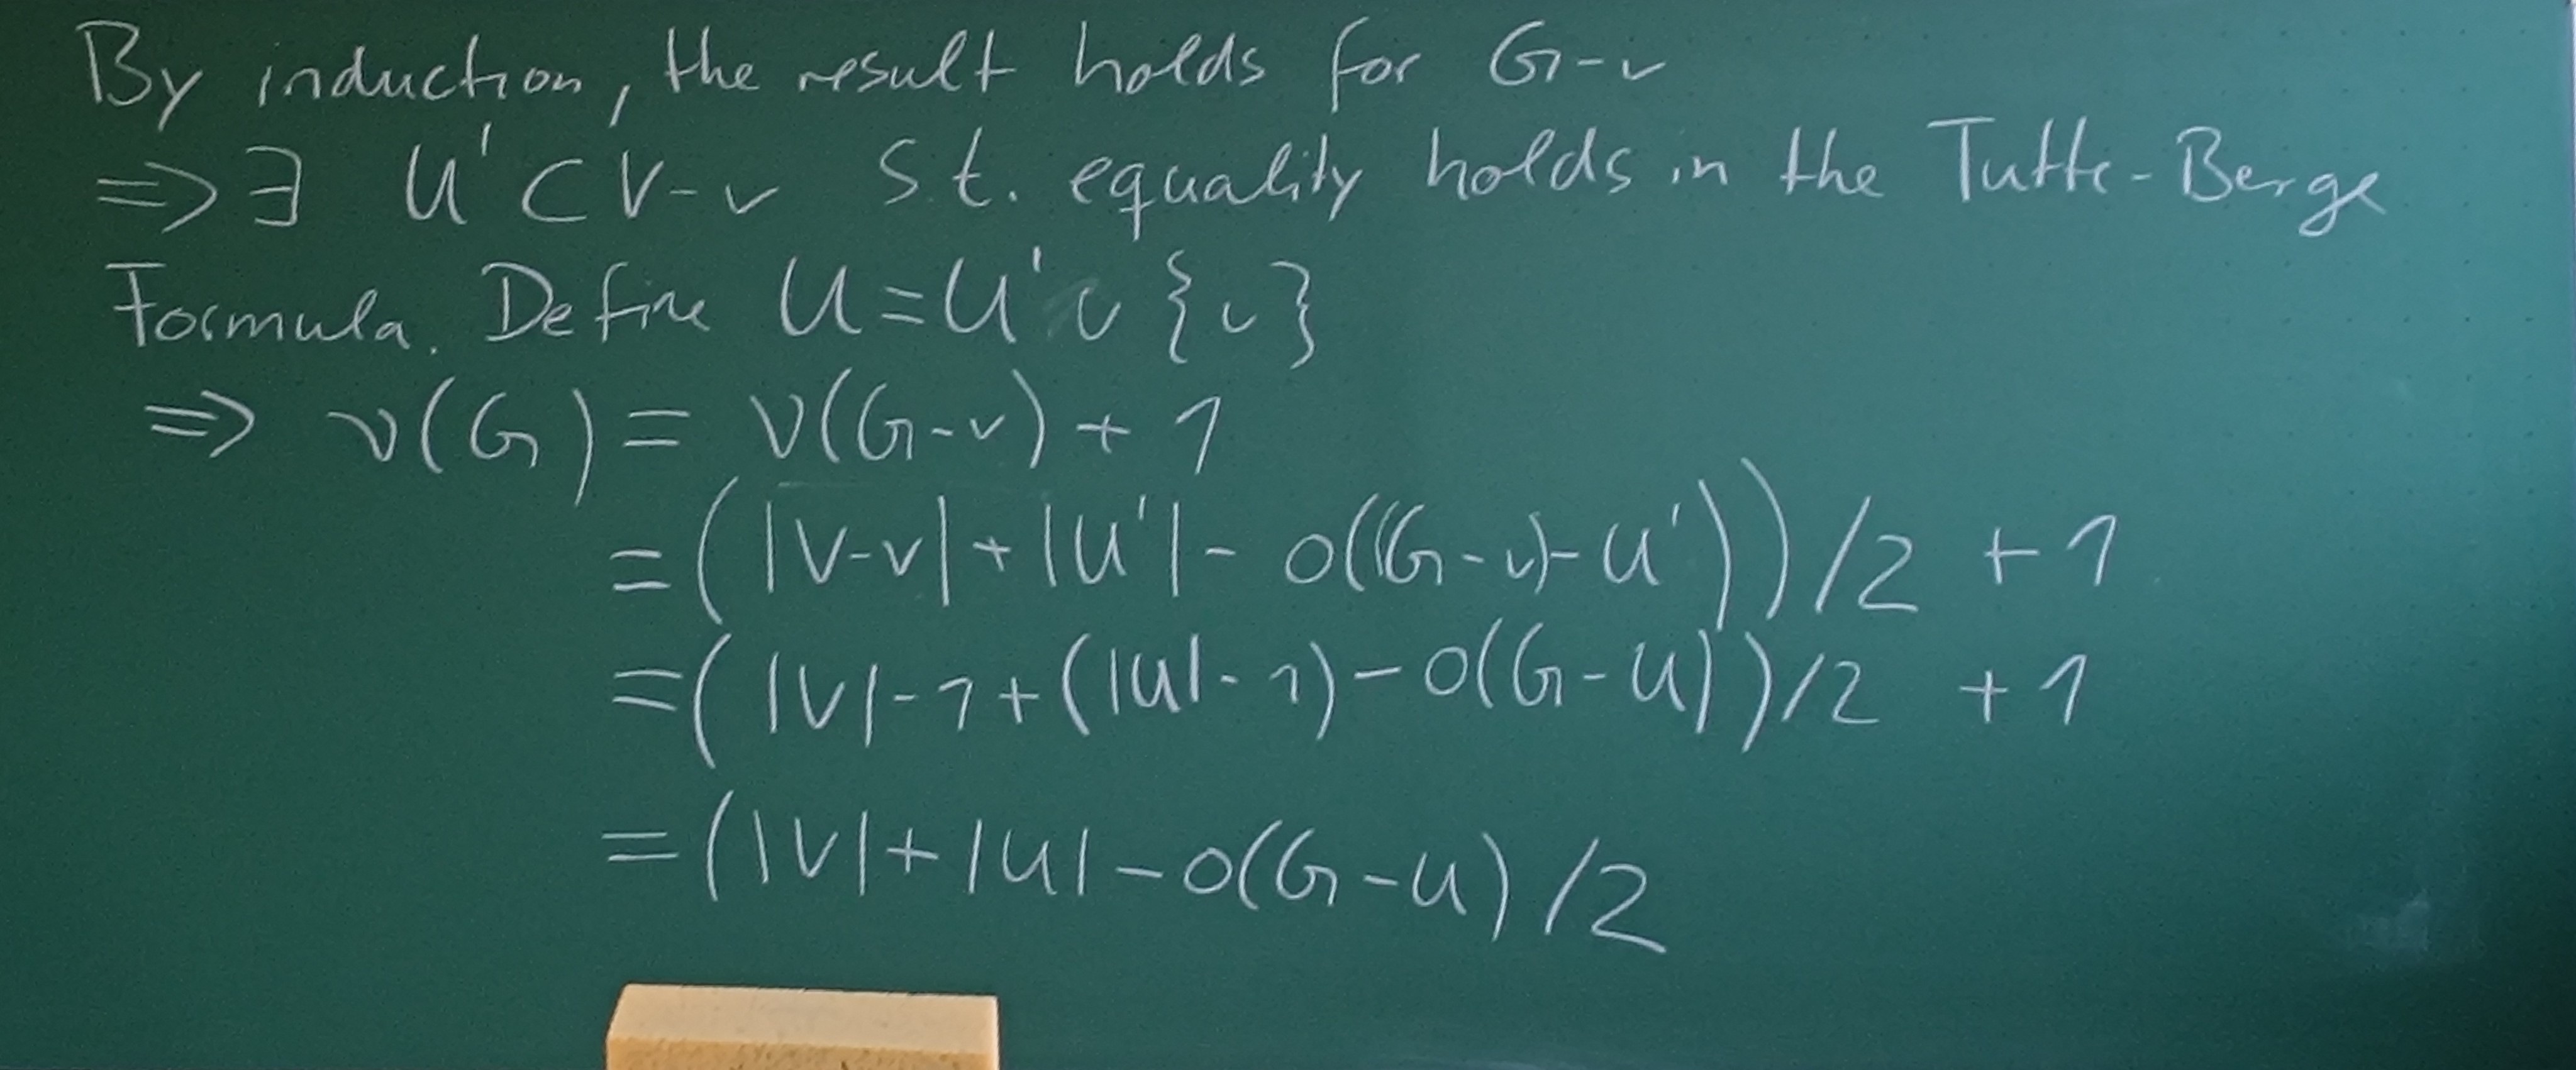 By induction, the result holds for G-v
⇒ ∃ U' ⊂ V-v s.t. equality holds in the Tutte-Berge
Formula. Define U = U' ∪ {v}
⇒ ν(G) = ν(G-v) + 1
= (|V-v| + |U'| - o((G-v)-U'))/2 + 1
= (|V|-1+(|U|-1)-o(G-U))/2 + 1
= (|V|+|U|-o(G-U)/2